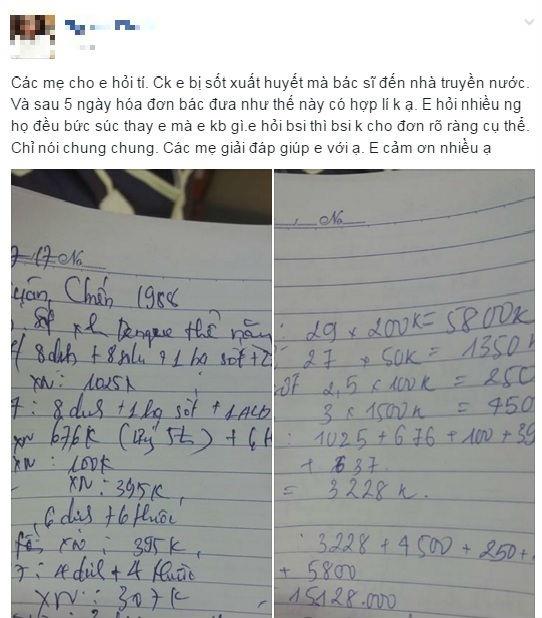 Các mẹ cho e hỏi tí. Ck e bị sốt xuất huyết mà bác sĩ đến nhà truyền nước.
Và sau 5 ngày hóa đơn bác đưa như thế này có hợp lí k ạ. E hỏi nhiều ng
họ đều bức súc thay e mà e kb gì.e hỏi bsi thì bsi k cho đơn rõ ràng cụ thể.
Chỉ nói chung chung. Các mẹ giải đáp giúp e với ạ. E cảm ơn nhiều ạ
No
Chiến 1988
Dengue thể nặng
XN: 1025K
xN 676K
XN: 100K
XN: 395K,
6 dịch + 6 thuốc
XN: 395K,
7: 4 dịch + 4 thuốc
XN: 307K
No
: 29 x 200K = 5800K
: 27 x 50K = 1350
2,5 x 100K = 250
3 x 1500K = 450
: 1025 + 676 + 100 + 39
+ 637
= 3228 K.
: 3228 + 4500 + 250 +
+ 5800
15128.000